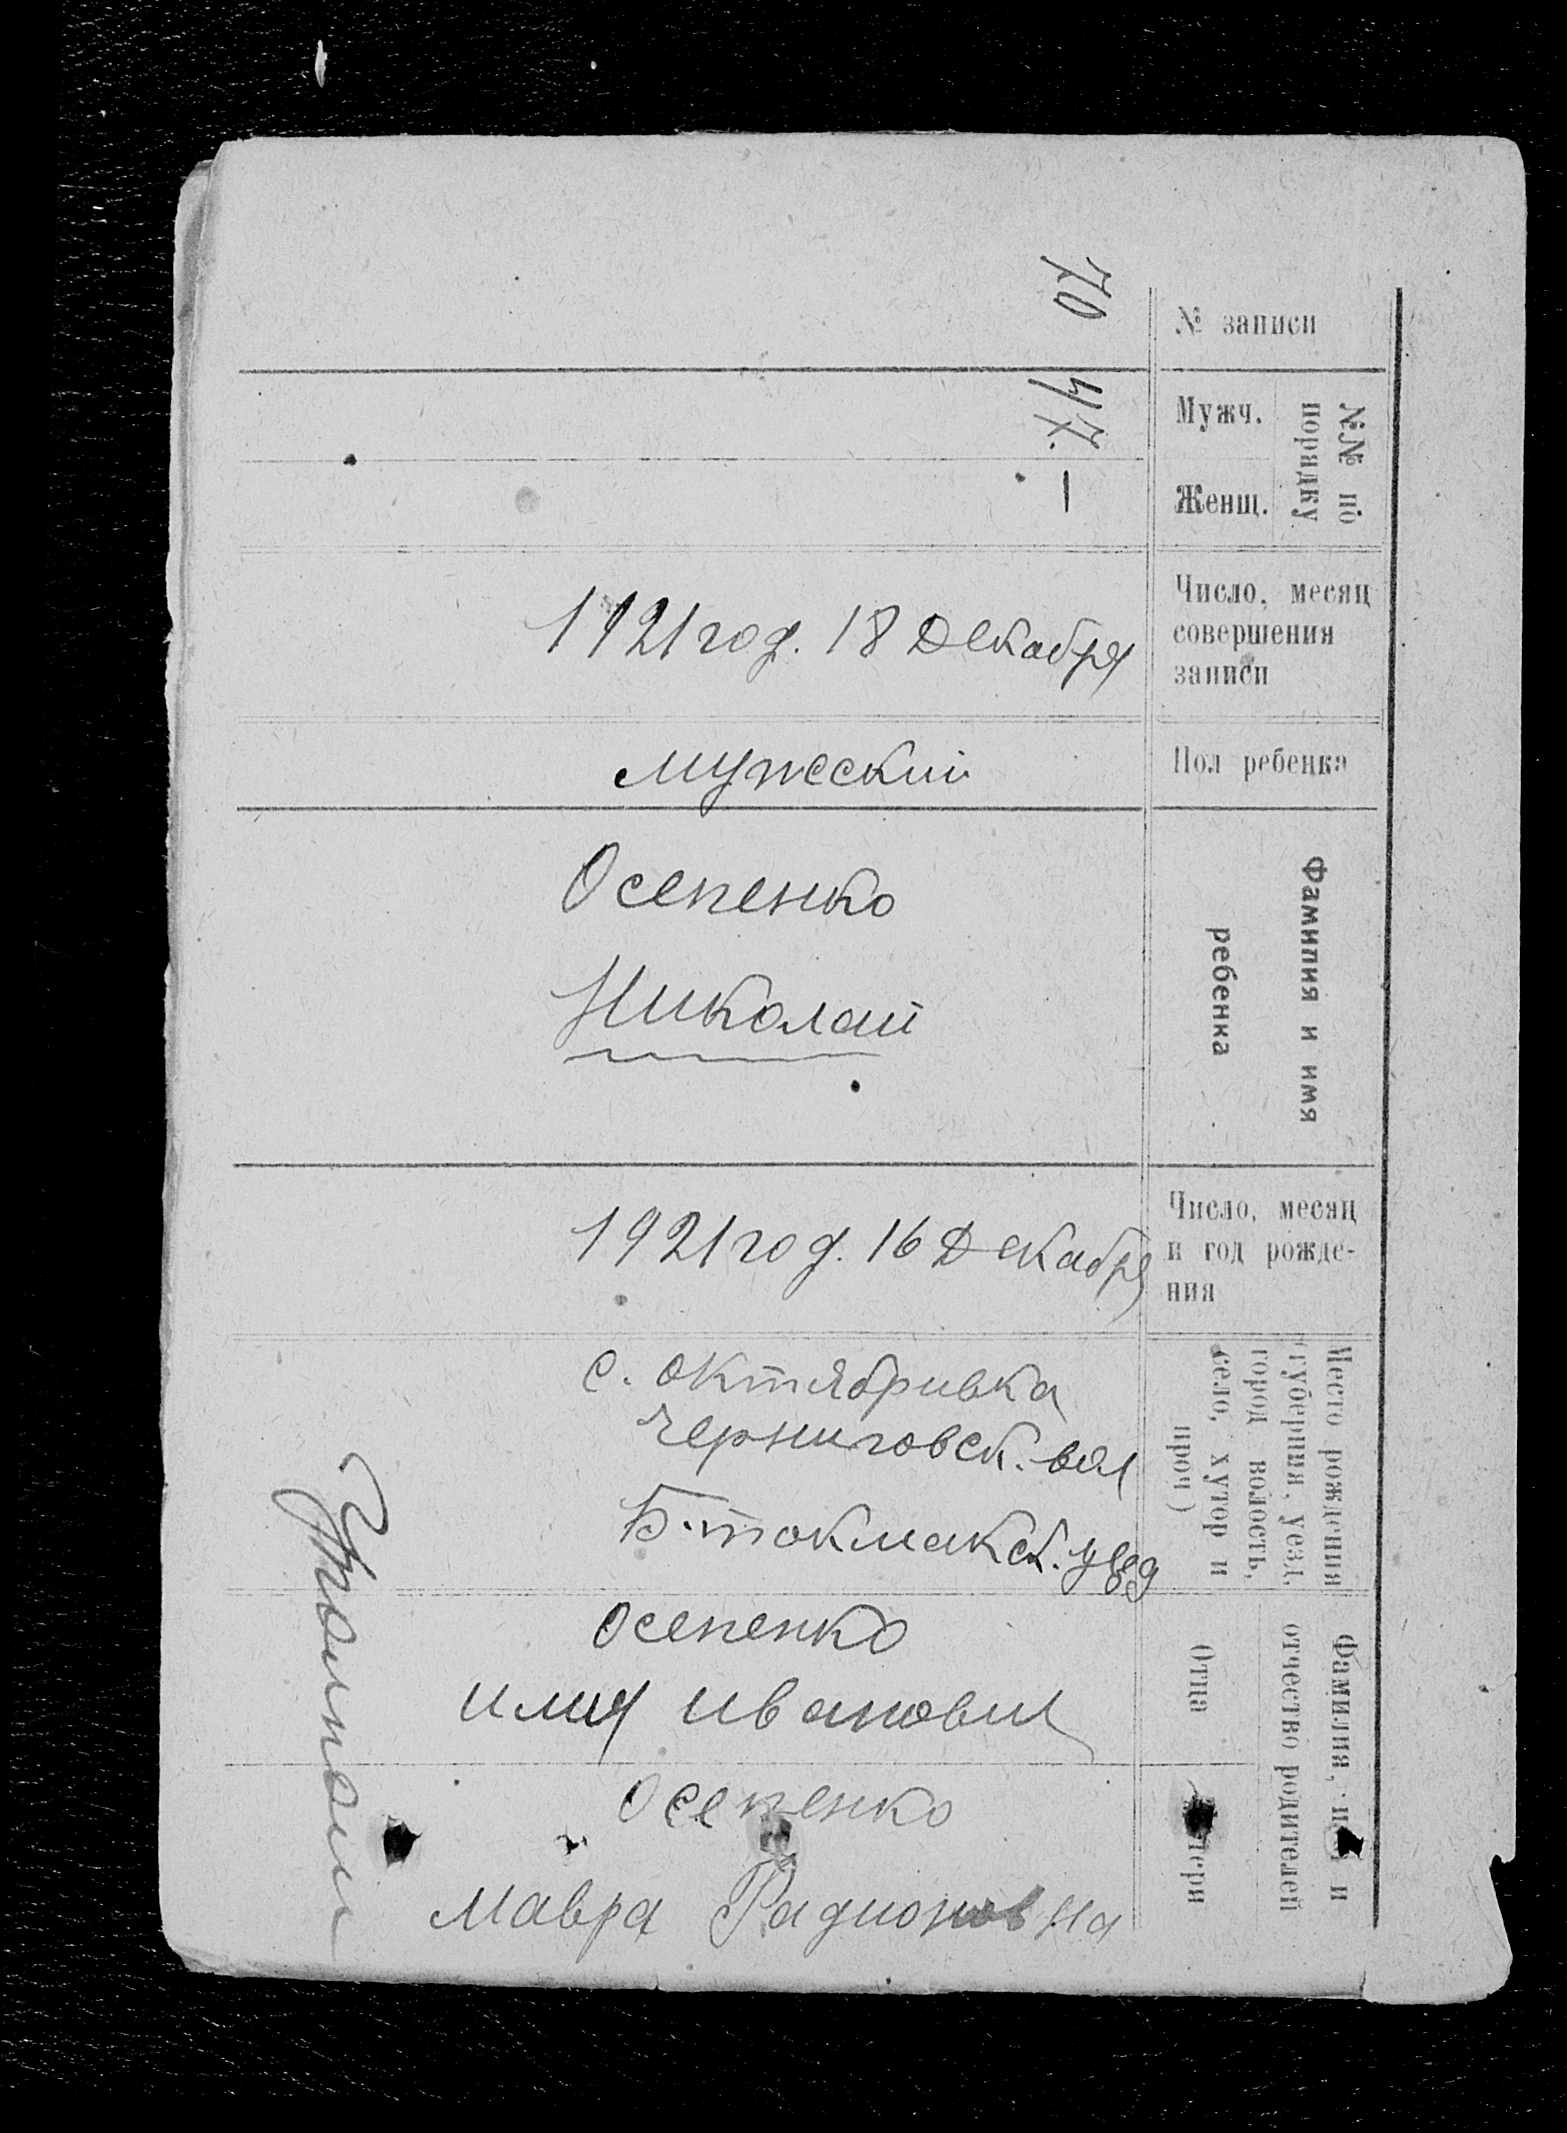 № записи
70
№№ по
порядку
Мужч.
47.
Женщ.
—
Число, месяц
совершения
записи
1921 год. 18 Декабря
Пол ребенка
мужеский
Фамилия и имя
ребенка
Осепенко
Николай
Число, месяц
и год рожде-
ния
1921 год. 16 Декабря
Место рождения
(губерния, уезд,
город волость,
село, хутор и
проч)
с. октябривка
Черниговск. вол
Б. токмакск. уезд
Фамилия, имя и
отчество родителей
Отца
Осепенко
илия иванович
матери
Осепенко
мавра Радионовна